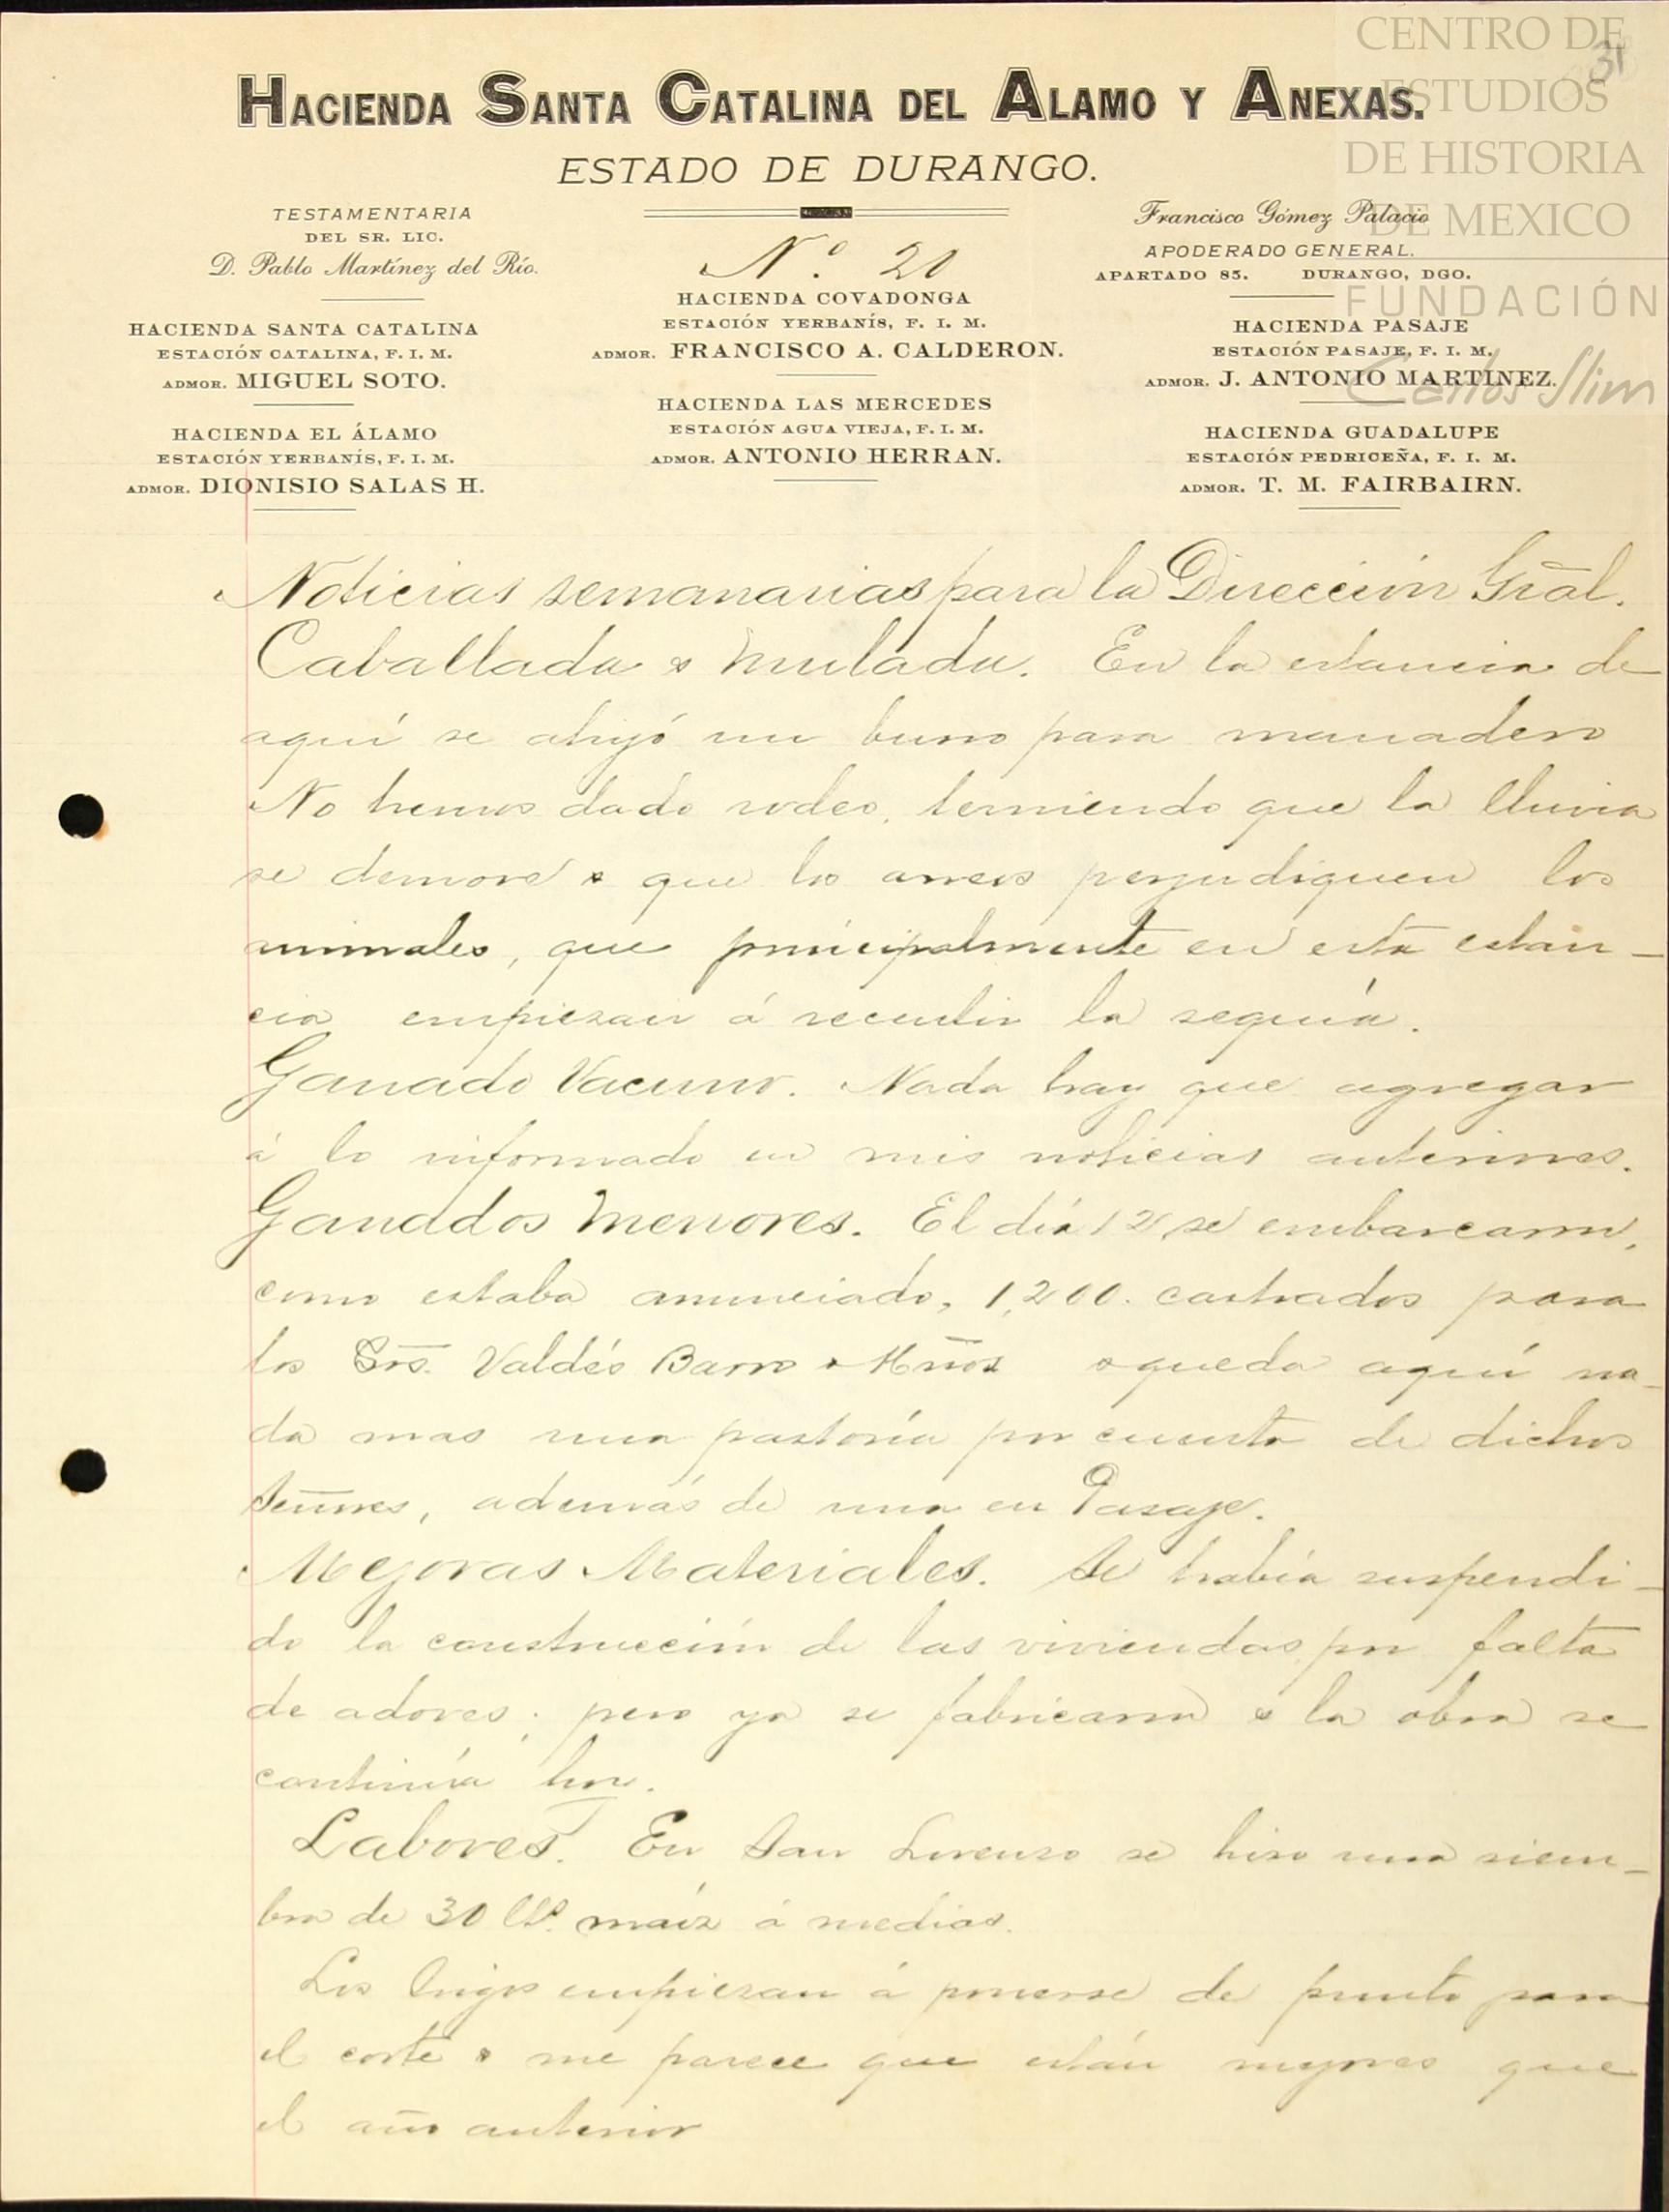 CENTRO DE
ESTUDIOS
DE HISTORIA
DE MEXICO
FUNDACIÓN
Carlos Slim
31
HACIENDA SANTA CATALINA DEL ALAMO Y ANEXAS.
ESTADO DE DURANGO.
TESTAMENTARIA
DEL SR. LIC.
D. Pablo Martínez del Río.
HACIENDA SANTA CATALINA
ESTACIÓN CATALINA, F. I. M.
ADMOR. MIGUEL SOTO.
HACIENDA EL ÁLAMO
ESTACIÓN YERBANÍS, F. I. M.
ADMOR. DIONISIO SALAS H.
Nº. 20
HACIENDA COVADONGA
ESTACIÓN YERBANÍS, F. I. M.
ADMOR. FRANCISCO A. CALDERON.
HACIENDA LAS MERCEDES
ESTACIÓN AGUA VIEJA, F. I. M.
ADMOR. ANTONIO HERRAN.
Francisco Gómez Palacio
APODERADO GENERAL.
APARTADO 85. DURANGO, DGO.
HACIENDA PASAJE
ESTACIÓN PASAJE, F. I. M.
ADMOR. J. ANTONIO MARTINEZ.
HACIENDA GUADALUPE
ESTACIÓN PEDRICEÑA, F. I. M.
ADMOR. T. M. FAIRBAIRN.
Noticias semanarias para la Dirección Gral.
Caballada y mulada. En la estancia de
aquí se ahijó un burro para manadero
No hemos dado rodeo, temiendo que la lluvia
se demore y que los arreos perjudiquen los
animales, que principalmente en esta estan-
cia empiezan á recentir la sequía.
Ganado Vacuno. Nada hay que agregar
á lo informado en mis noticias anteriores.
Ganados menores. El día 12 se embarcaron,
como estaba anunciado, 1,200. castrados para
los Srs. Valdés Barro y Hnos y queda aquí na-
da mas una pastoría por cuenta de dichos
señores, además de una en Pasaje.
Mejoras Materiales. Se había suspendi-
do la construcción de las viviendas por falta
de adoves; pero ya se fabricaron y la obra se
continúa hoy.
Labores. En San Lorenzo se hizo una siem-
bra de 30 maíz á medias.
Los trigos empiezan á ponerse de punto para
el corte y me parece que están mejores que
el año anterior